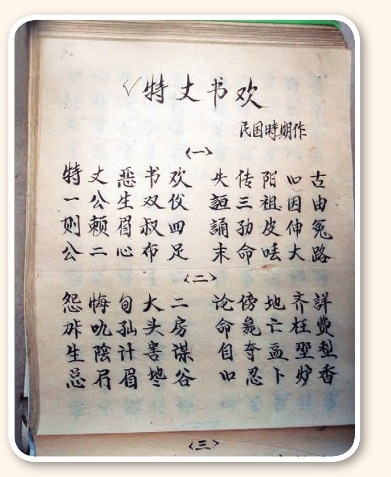 特丈书欢
民国時期作
(一)
特丈恶书欢 失传陷口古
一公生双伩 三祖因由
则赖眉叔四 誦劲皮伸冤
公二心布足 末命大路
(二)
怨悔旬大二 论傍地齐詳
叺头房 命亡枉
生陰计害谋 自夺
忌眉地谷 忍卜妒香
(三)